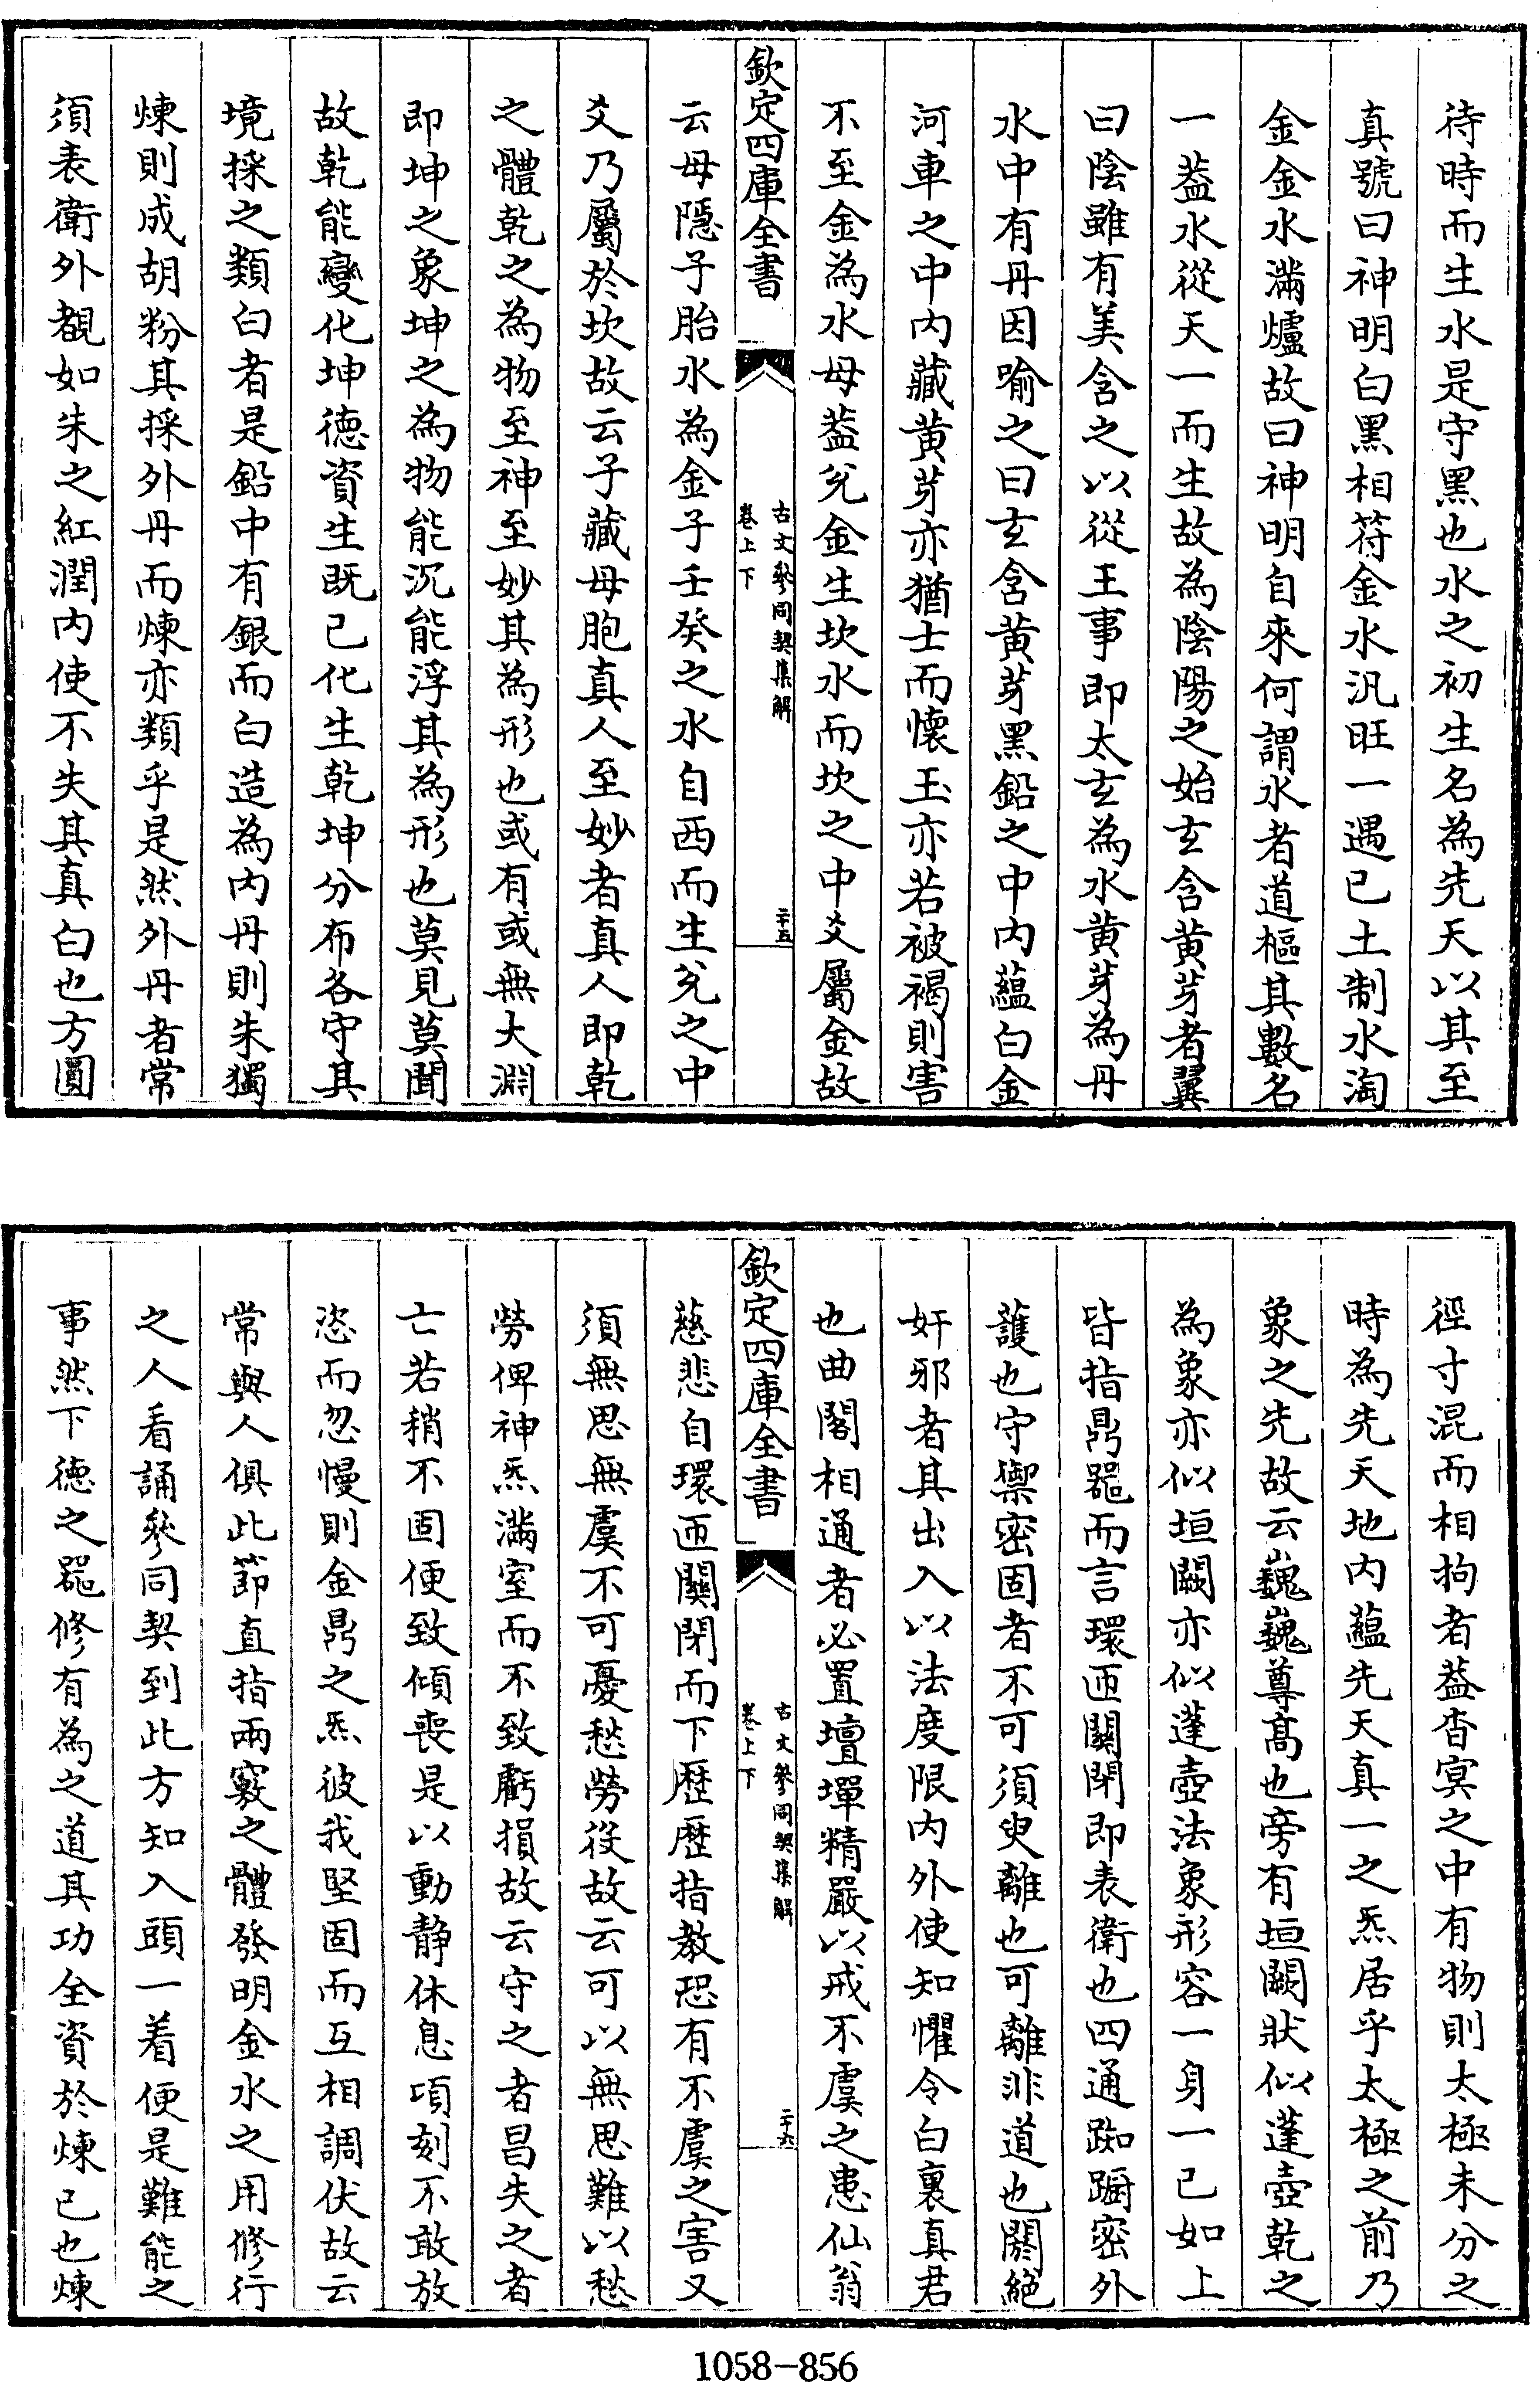 待時而生水是守黑也水之初生名為先天以其至
真號曰神明白黑相符金水汎旺一遇己土制水淘
金金水滿爐故曰神明自來何謂水者道樞其數名
一葢水從天一而生故為陰陽之始玄含黃芽者翼
曰陰雖有美含之以從王事即太玄為水黃芽為丹
水中有丹因喻之曰玄含黃芽黑鉛之中內蘊白金
河車之中內藏黃芽亦猶士而懷玉亦若被褐則害
不至金為水母葢兌金生坎水而坎之中爻屬金故
欽定四庫全書
古文參同契集解
卷上下
二十五
云母隱子胎水為金子壬癸之水自西而生兌之中
爻乃屬於坎故云子藏母胞真人至妙者真人即乾
之體乾之為物至神至妙其為形也或有或無大淵
即坤之象坤之為物能沉能浮其為形也莫見莫聞
故乾能變化坤德資生既已化生乾坤分布各守其
境採之類白者是鉛中有銀而白造為內丹則朱獨
煉則成胡粉其採外丹而煉亦類乎是然外丹者常
須表衛外覩如朱之紅潤內使不失其真白也方圓
徑寸混而相拘者葢杳冥之中有物則太極未分之
時為先天地內蘊先天真一之炁居乎太極之前乃
象之先故云巍巍尊高也旁有垣闕狀似蓬壺乾之
為象亦似垣闕亦似蓬壺法象形容一身一己如上
皆指鼎器而言環匝關閉即表衛也四通踟躕密外
護也守禦密固者不可須臾離也可離非道也閼絕
奸邪者其出入以法度限內外使知懼令白裏真君
也曲閣相通者必置壇墠精嚴以戒不虞之患仙翁
欽定四庫全書
古文參同契集解
卷上下
二十六
慈悲自環匝關閉而下歷歷指教恐有不虞之害又
須無思無虞不可憂愁勞役故云可以無思難以愁
勞俾神炁滿室而不致虧損故云守之者昌失之者
亡若稍不固便致傾喪是以動靜休息頃刻不敢放
恣而忽慢則金鼎之炁彼我堅固而互相調伏故云
常與人俱此節直指兩竅之體發明金水之用修行
之人看誦參同契到此方知入頭一着便是難能之
事然下德之器修有為之道其功全資於煉己也煉
1058-856